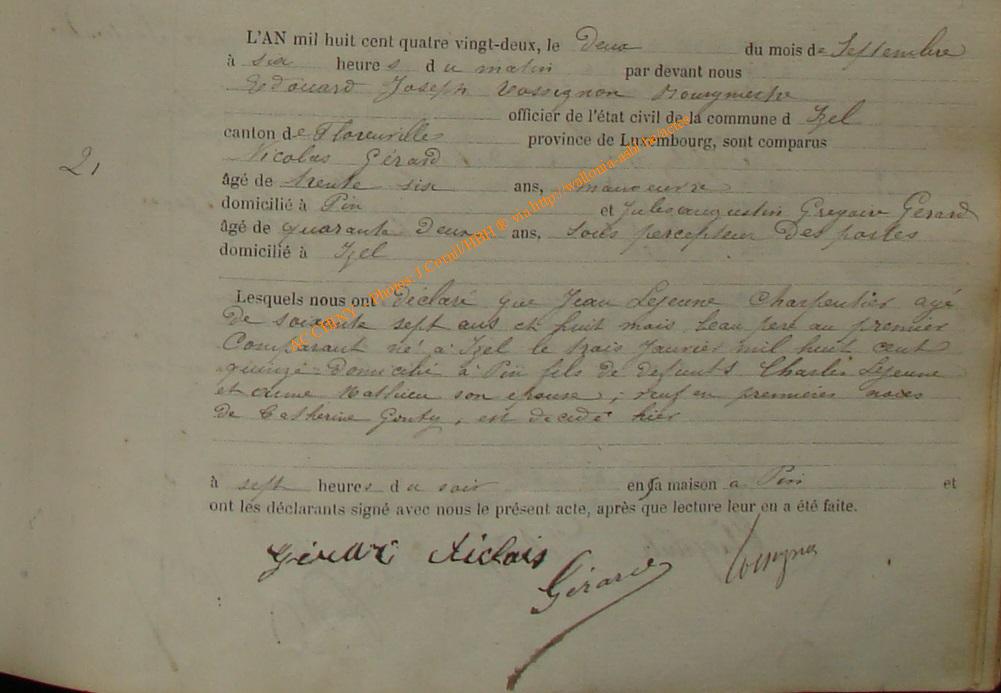 L'AN mil huit cent quatre vingt-deux, le Deux du mois de Septembre
à six heures du matin par devant nous
Edouard Joseph Rossignon Bourgmestre
officier de l'état civil de la commune d Izel
canton de Florenville province de Luxembourg, sont comparus
Nicolas Gérard
2,
âgé de trente six ans, manoeuvre
domicilié à Pin et Jules augustin Gregoire Gérard
âgé de quarante Deux ans, Sous percepteur Des postes
domicilié à Izel
Lesquels nous ont Déclaré que Jean Lejeune Charpentier agé
De soixante sept ans et huit mois, beau pere au premier
Comparant né à Izel le trois Janvier mil huit cent
quinze Domicilié à Pin fils de defunts Charles Lejeune
et anne Mathieu son epouse ; veuf en premières noces
de Catherine Gouty, est decedé hier
à sept heures du soir en sa maison a Pin et
ont les déclarants signé avec nous le présent acte, après que lecture leur en a été faite.
Gérard Niclais Gérard Rossignon
ACCHINY - Photos J.Cornil/HBH ® via http://wallonia-asbl.be/actes